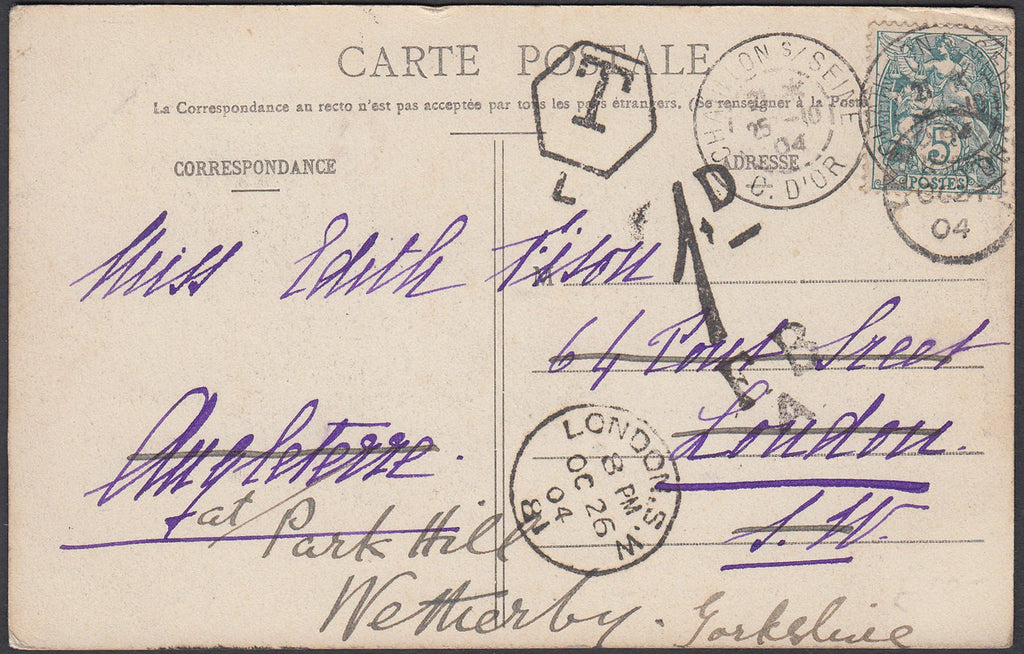 CARTE POSTALE
La Correspondance au recto n'est pas acceptée par tous les pays étrangers. (Se renseigner à la Poste
CORRESPONDANCE
ADRESSE
T
L
CHATILLON S/SEINE
25 -10
04
C. D'OR
5c
POSTES
04
1D
Miss Edith Tison
M
64 Pont Sreet
London.
S.W.
Angleterre.
FB
A
LONDON.S.W
8 PM
OC 26
04
N8
at Park Hill
Wetherby. Yorkshire